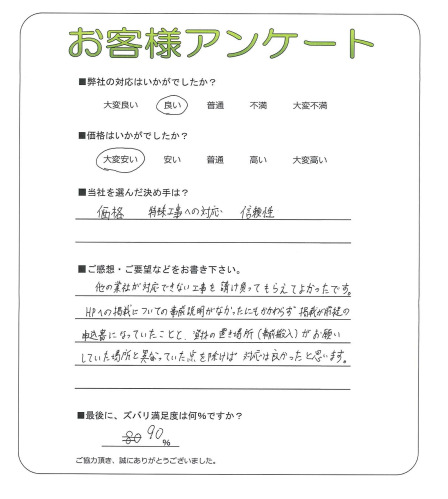 お客様アンケート
■弊社の対応はいかがでしたか？
大変良い 良い 普通 不満 大変不満
■価格はいかがでしたか？
大変安い 安い 普通 高い 大変高い
■当社を選んだ決め手は？
価格 特殊工事への対応 信頼性
■ご感想・ご要望などをお書き下さい。
他の業社が対応できない工事を請け負ってもらえてよかったです。
HPへの掲載についての事前説明がなかったにもかかわらず掲載が前提の
申込書になっていたことと、資材の置き場所（事前搬入）がお願い
していた場所と異なっていた点を除けば対応は良かったと思います。
■最後に、ズバリ満足度は何％ですか？
80 90 %
ご協力頂き、誠にありがとうございました。